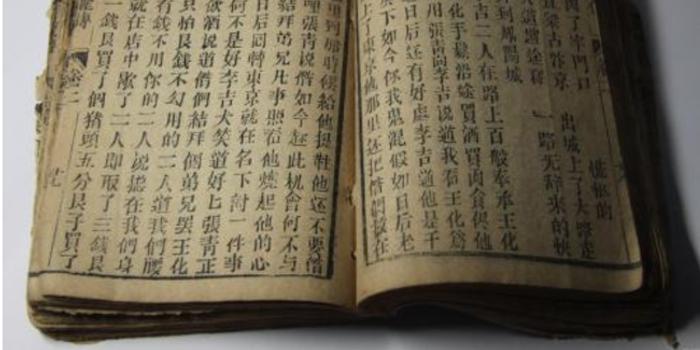 慌慌的
了牢門口 出城上了大路走
梁古汴京 一路无辞来的快
到鳳陽城
吉二人在路上百般奉承王化
化手鬆沿途買酒買肉食與他
用張青向李吉説道我看王化為
日后还有好處李吉道他是干
下如今你我鬼混假如日后老
上了東京他那里还把偺們放在
里到那時候給他提鞋他还不要偺
哩張青説偺如今趂此机會何不与
結拜弟兄凡事照看他燒起他的心
日后囘轉東京就在名下討一件事
何不是好李吉大笑道好七張青正
欲酒説道偺們結拜個弟兄罢王化
只怕艮錢不勾用的二人道我們腰
有錢不用你的二人説搃在我們身
就在店中歇了二人即取了三錢艮
一錢艮買了個猪頭五分艮子買了
卷二 十七